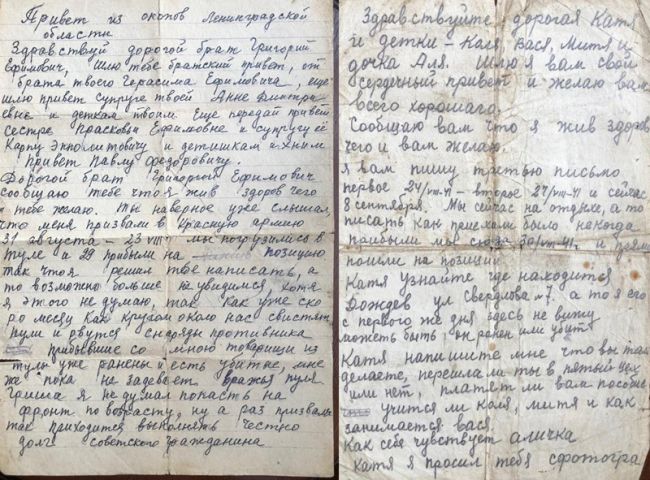 Привет из окопов Ленинградской
области
Здравствуй дорогой брат Григорий
Ефимович, шлю тебе братский привет, от
брата твоего Герасима Ефимовича, еще
шлю привет супруге твоей Анне Дмитри
евне и деткам твоим. Еще передай привет
сестре Прасковьи Ефимовне и супругу её
Карпу Эпполитовичу и детишкам ихним
Привет Павлу Федоровичу.
Дорогой брат Григорий Ефимович
сообщаю тебе что я жив здоров чего
и тебе желаю. Ты наверное уже слышал,
что меня призвали в Красную армию
31 августа - 23/VIII мы погрузились в
Туле и 29 прибыли на позицию
так что я решил тебе написать, а
то возможно больше не увидимся, хотя
я этого не думаю, так как уже ско
ро месяц как кругом около нас свистят
пули и рвутся снаряды противника
прибывшие со мною товарищи из
тулы уже ранены и есть убитые, мне
же пока не задевает вражья пуля
Гриша я не думал попасть на
фронт по возрасту, ну а раз призвали
так приходится выполнять честно
долг советского гражданина
Здравствуйте дорогая Катя
и детки - Каля, Вася, Митя и
дочка Аля. Шлю я вам свой
сердечный привет и желаю вам
всего хорошага.
Сообщаю вам что я жив здоров
чего и вам желаю.
я вам пишу третью письмо
первое 24/VIII-41 - второе 27/VIII-41 и сейчас
8 сентября. Мы сейчас на отдыхе, а то
писать как приехали было некогда
прибыли мы сюда 30/VIII-41. и прям
пошли на позиции
Катя узнайте где находится
Дождев ул Свердлова №7. а то я его
с первого же дня здесь не вижу
может быть, он ранен или убит
Катя напишите мне что вы там
делаете, перешла ли ты в пятый цех
или нет, платят ли вам пособие
учится ли Коля, митя и как
занимается вася.
Как себя чувствует аличка
Катя я просил тебя сфотогра